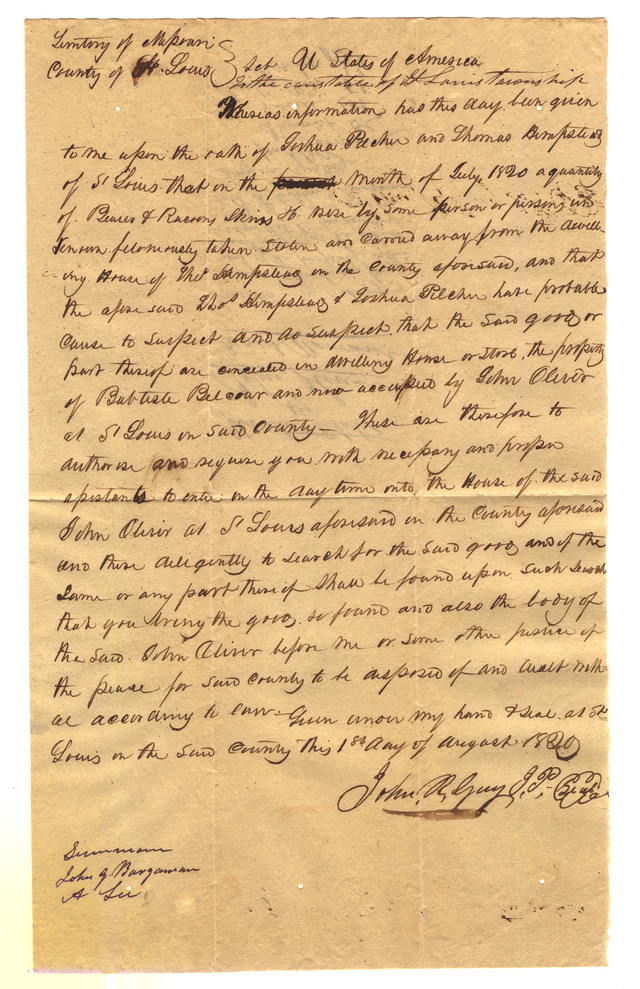 Territory of Missouri
County of St. Louis } Sct U States of America
To the constable of St Louis Township
Whereas information has this day been given
to me upon the oath of Joshua Pilcher and Thomas Hempstead
of St Louis that on the month of July 1820 a quantity
of Beaver & Racoons Skins &c were by some person or persons un
known feloniously taken Stolen and Carried away from the dwell
ing House of Thos Hempstead in the County aforesaid, and that
the afore said Thos Hempstead & Joshua Pilcher have probable
cause to suspect and do suspect that the said goods or
part thereof are concealed in dwelling House or Store the property
of Babtiste Belcour and now occupied by John Oliver
at St Louis in said County — These are therefore to
authorise and require you with necessary and proper
assistants to enter in the day time into the House of the said
John Oliver at St Louis aforesaid in the County aforesaid
and there diligently to search for the said goods and if the
same or any part thereof shall be found upon such search
that you bring the goods so found and also the body of
the said John Oliver before me or some other justice of
the peace for said County to be disposed of and dealt with
al according to law. Given under my hand & Seal at St
Louis in the said County this 1st day of August 1820
John R. Guy J. P. Seal
Summon
John G Bargaman
A Lee